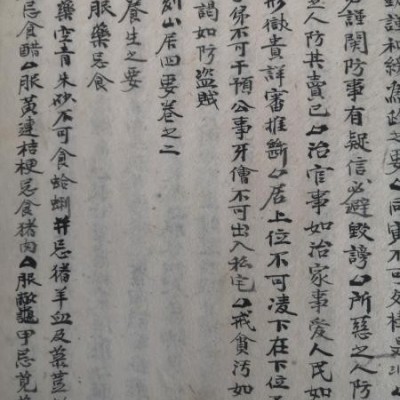 毀謹和緩為政之要△同寅不可
必謹関防事有疑信必避毀謗△所忌之人防
人防其賣己△治官事如治家事愛人民如
形獄貴詳審推斷△居上位不可凌下在下位
不可干預公事牙儈不可出入私宅△戒貪污如
謁如防盜賊
刻山居四要卷之二
養生之要
服藥忌食
藥空青朱砂不可食蛤蜊并忌猪羊血及菉荳
忌食醋△服黃連桔梗忌食猪肉△服敗龜甲忌莧